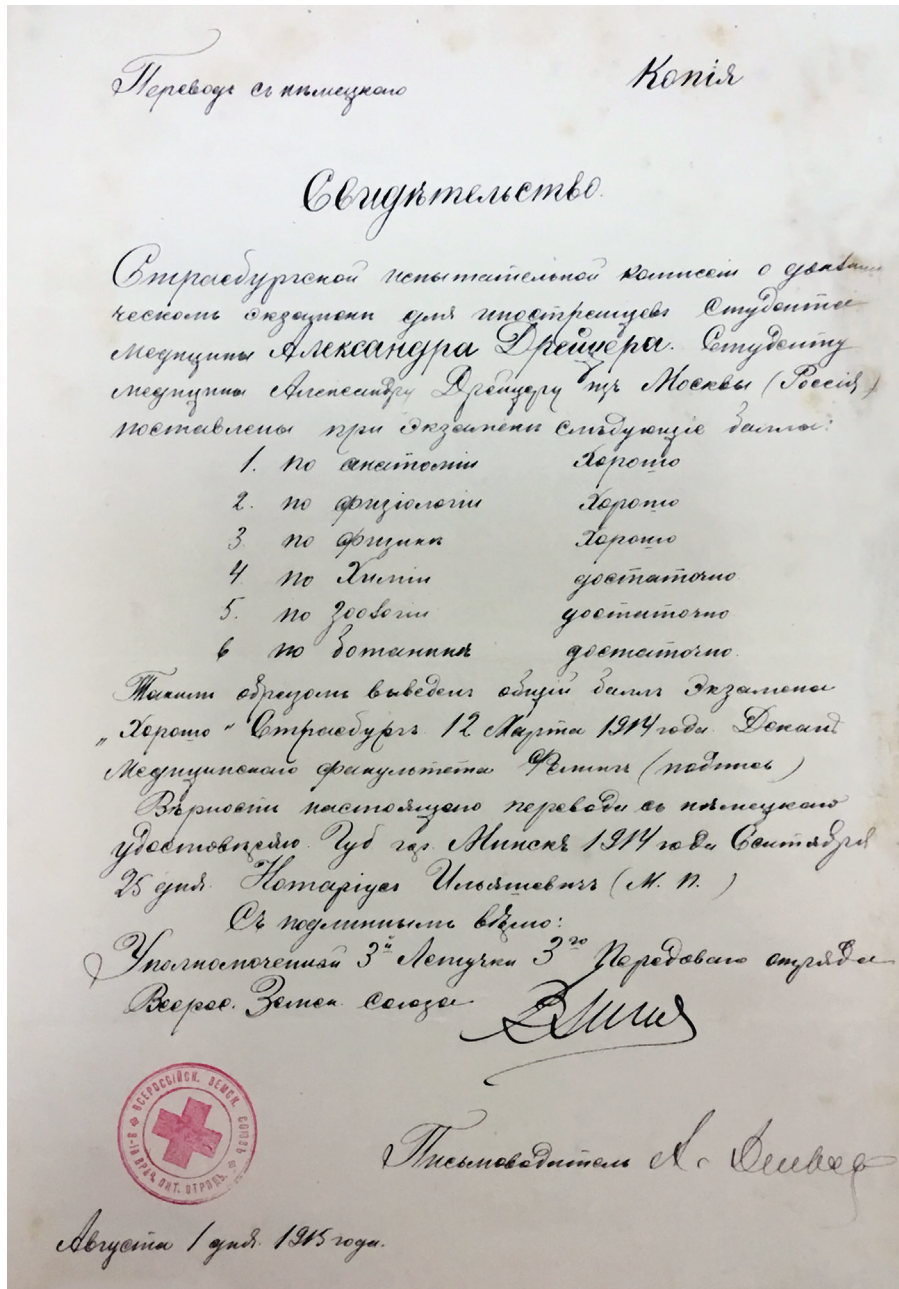 Переводъ съ нѣмецкаго
Копія
Свидѣтельство.
Страсбургской испытательной комисіи о
ческомъ экзаменѣ для иностранцевъ Студента
медицины Александра Дрейцера. Студенту
медицины Александру Дрейцеру изъ Москвы (Россія)
поставлены при экзаменѣ слѣдующіе баллы:
1. по анатоміи хорошо
2. по физіологіи хорошо
3. по физикѣ хорошо
4 по Химіи достаточно
5. по Зоологіи достаточно
6 по ботаникѣ достаточно.
Такимъ образомъ выведенъ общій баллъ экзамена
„Хорошо“ Страсбургъ 12 Марта 1914 года. Деканъ
Медицинскаго факультета (подпись)
Вѣрность настоящаго перевода съ нѣмецкаго
удостовѣряю. Губ. гор. Минскъ 1914 года Сентября
25 дня. Нотаріусъ Ильяшевичъ (М. П.)
Съ подлиннымъ вѣрно:
Уполномоченный 3й Летучки 3го Передоваго отряда
Всерос. Земск. Союза
ВСЕРОССІЙСК. ЗЕМСК. СОЮЗЪ
ВРАЧ. ПИТ. ОТРЯДЪ
Письмоводитель А.
Августа 1 дня. 1915 года.